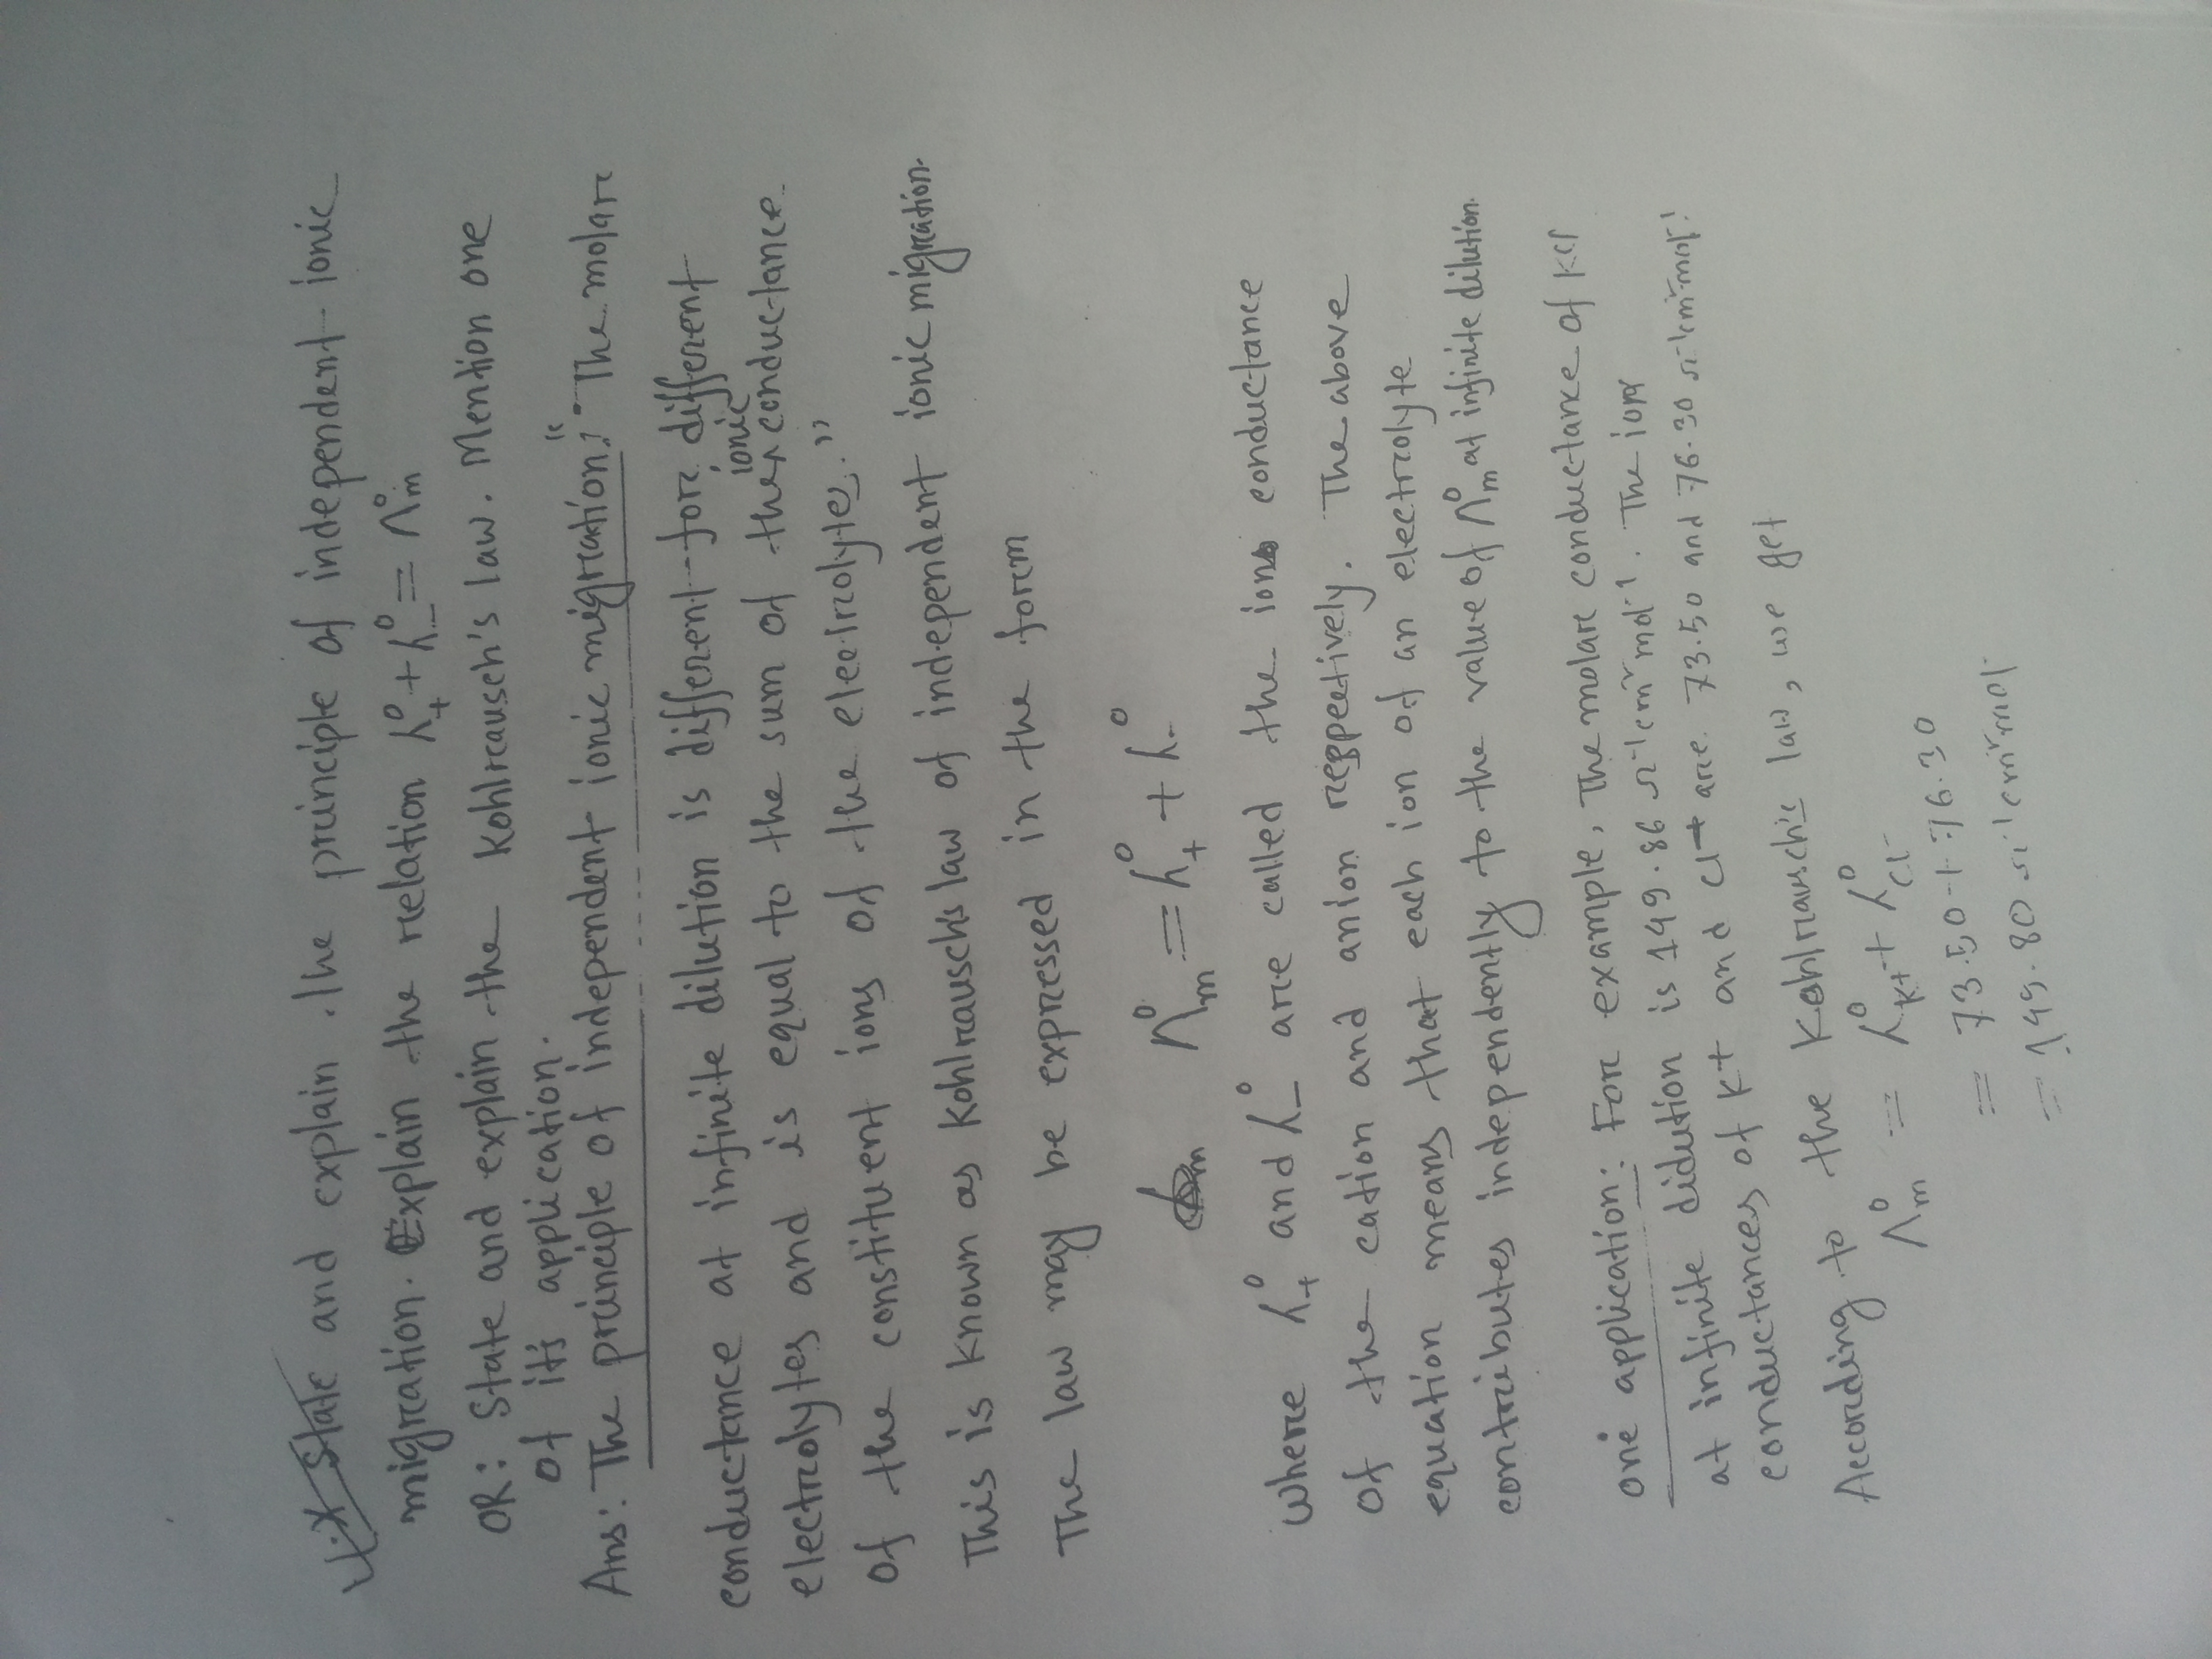 State and explain the principle of independent ionic
migration. Explain the relation λ°₊ + λ°₋ = Λ°m
OR: State and explain the Kohlrausch's law. Mention one
of it's application.
Ans: The principle of independent ionic migration: "The molar
conductance at infinite dilution is different for different
electrolytes and is equal to the sum of the ionic conductance
of the constituent ions of the electrolytes."
This is known as Kohlrausch's law of independent ionic migration.
The law may be expressed in the form
Λ°m = λ°₊ + λ°₋
where λ°₊ and λ°₋ are called the ions conductance
of the cation and anion respectively. The above
equation means that each ion of an electrolyte
contributes independently to the value of Λ°m at infinite dilution.
one application: For example, The molar conductance of KCl
at infinite didution is 149.86 Ω⁻¹cm²mol⁻¹. The ion
conductances of K+ and Cl- are 73.50 and 76.30 Ω⁻¹cm²mol⁻¹
According to the Kohlrausch's law, we get
Λ°m = λ°K+ + λ°Cl-
= 73.50 + 76.30
= 149.80 Ω⁻¹cm²mol⁻¹